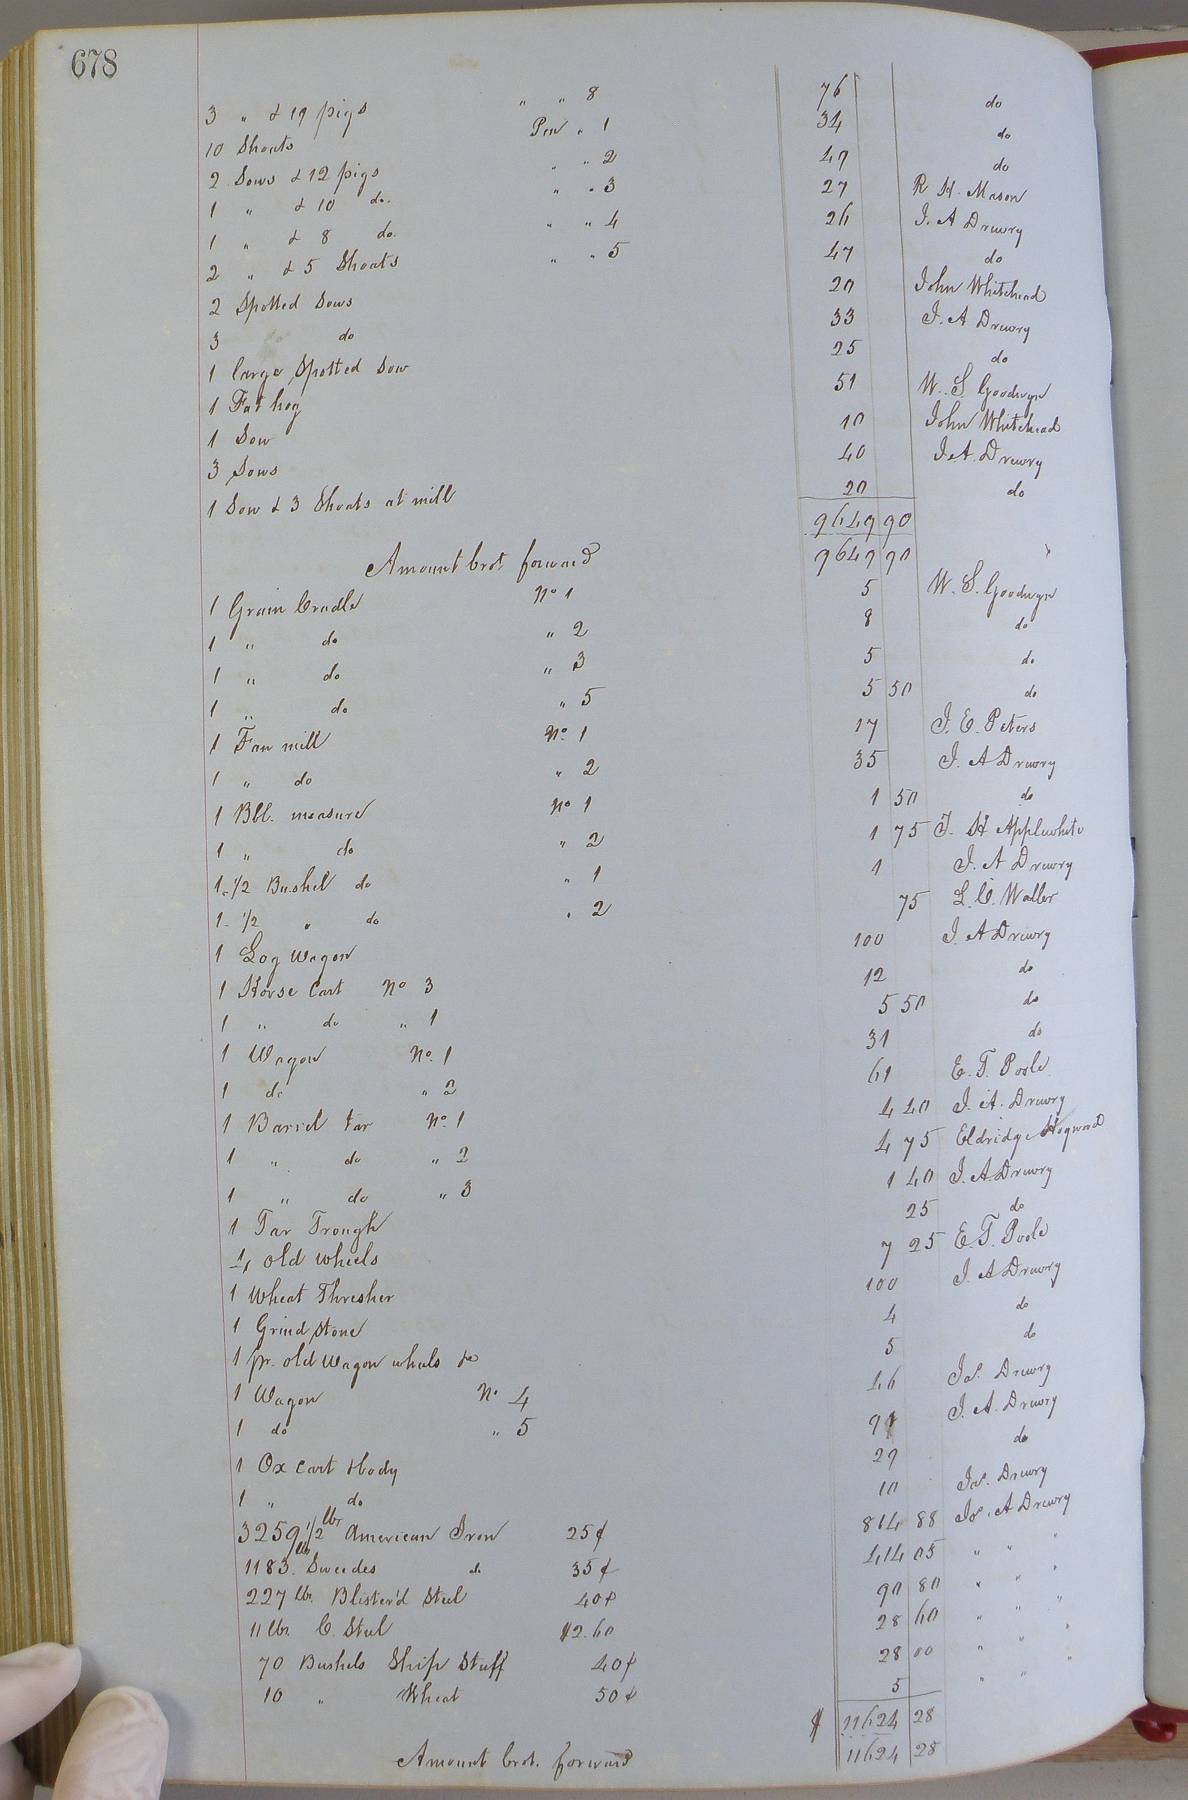 678
3 " & 19 pigs " " 8 76 do
10 Shoats Pen " 1 34 do
2 Sows & 12 pigs " " 2 49 do
1 " & 10 do. " " 3 27 R H. Mason
1 " & 8 do. " " 4 26 J. A Drewry
2 " & 5 Shoats " " 5 47 do
2 Spotted Sows 20 John Whitehead
3 do 33 J. A Drewry
1 large Spotted Sow 25 do
1 Fat hog 51 W. S. Goodwyn
1 Sow 10 John Whitehead
3 Sows 40 J. A. Drewry
1 Sow & 3 Shoats at mill 20 do
9649 90
Amount brot. forward 9649 90
1 Grain Cradle No 1 5 W. S. Goodwyn
1 " do " 2 8 do
1 " do " 3 5 do
1 " do " 5 5 50 do
1 Fan mill No. 1 17 J. E. Peters
1 " do " 2 35 J. A Drewry
1 Bbl. measure No 1 1 50 do
1 " do " 2 1 75 T. H Applewhite
1 - 1/2 Bushel do " 1 1 J. A Drewry
1 - 1/2 " do " 2 75 L. C. Waller
1 Log wagon 100 J. A Drewry
1 Horse Cart No 3 12 do
1 " do " 1 5 50 do
1 Wagon No. 1 31 do
1 do " 2 61 E. T. Poole
1 Barrel tar No. 1 4 40 J. A. Drewry
1 " do " 2 4 75 Eldridge Hogwood
1 " do " 3 1 40 J. A. Drewry
1 Tar Trough 25 do
4 old wheels 7 25 E. T. Poole
1 Wheat Thresher 100 J. A Drewry
1 Grind Stone 4 do
1 pr. old Wagon wheels &c 5 do
1 Wagon No 4 46 Jas. Drewry
1 do " 5 91 J. A. Drewry
1 Ox Cart & body 29 do
1 " do 10 Jas. Drewry
3259 1/2 lbs American Iron 25¢ 814 88 Jas. A Drewry
1183 lbs. Sweedes do 35¢ 414 05 " " "
227 lbs. Blister'd Steel 40¢ 90 80 " " "
11 lbs. C. Steel $2.60 28 60 " " "
70 Bushels Ship Stuff 40¢ 28 00 " " "
10 " Wheat 50¢ 5 " " "
$ 11624 28
Amount brot. forward 11624 28